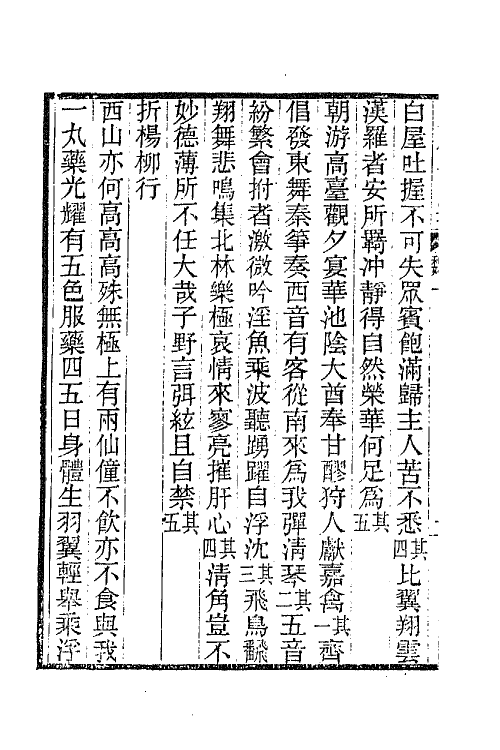 白屋吐握不可失眾賓飽滿歸主人苦不悉其四比翼翔雲
漢羅者安所羈冲靜得自然榮華何足為其五
朝游高臺觀夕宴華池陰大酋奉甘醪狩人獻嘉禽其一齊
倡發東舞秦箏奏西音有客從南來為我彈清琴其二五音
紛繁會拊者激微吟淫魚乘波聽踴躍自浮沈其三飛鳥翻
翔舞悲鳴集北林樂極哀情來寥亮摧肝心其四清角豈不
妙德薄所不任大哉子野言弭絃且自禁其五
折楊柳行
西山亦何高高高殊無極上有兩仙僮不飲亦不食與我
一丸藥光耀有五色服藥四五日身體生羽翼輕舉乘浮